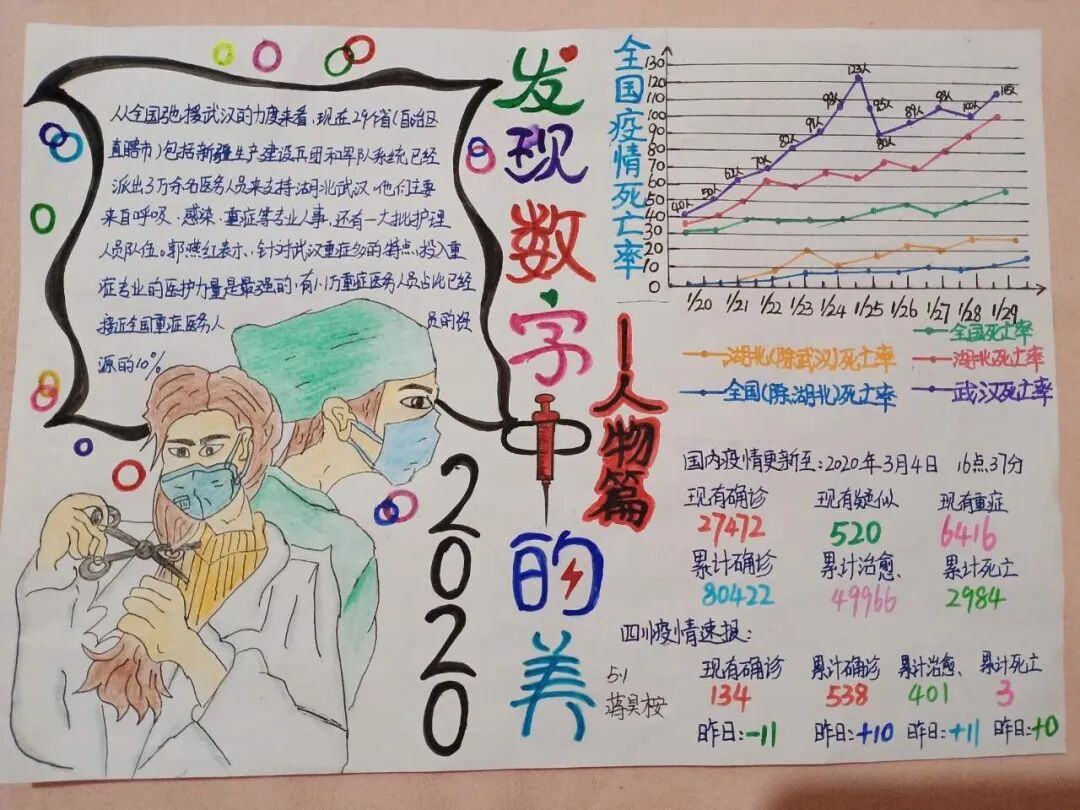 从全国驰援武汉的力度来看，现在29个省（自治区
直辖市）包括新疆生产建设兵团和军队系统已经
派出3万余名医务人员来支持湖北武汉，他们主要
来自呼吸、感染、重症等专业人事，还有一大批护理
人员队伍。郭燕红表示，针对武汉重症多的特点，投入重
症专业的医护力量是最强的，有1.1万重症医务人员占比已经
接近全国重症医务人员的资
源的10%
发现数字中的美
——人物篇
2020
全国疫情死亡率
130
120
110
100
90
80
70
60
50
40
30
20
10
0
40人 50人 62人 70人 82人 91人 98人 123人 95人 80人 89人 98人 100人 115人
1/20 1/21 1/22 1/23 1/24 1/25 1/26 1/27 1/28 1/29
全国死亡率
湖北(除武汉)死亡率 湖北死亡率
全国(除湖北)死亡率 武汉死亡率
国内疫情更新至：2020年3月4日 16点37分
现有确诊 现有疑似 现有重症
27472 520 6416
累计确诊 累计治愈 累计死亡
80422 49966 2984
四川疫情速报：
现有确诊 累计确诊 累计治愈 累计死亡
134 538 401 3
昨日：-11 昨日：+10 昨日：+11 昨日：+0
5.1
蒋昊桉